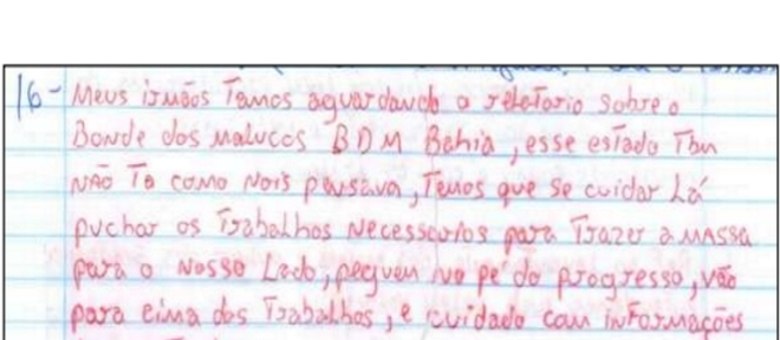 16- Meus irmãos Tamos aguardando o relatorio sobre o
Bonde dos malucos BDM Bahia, esse estado Tbm
NÃO Ta como Nois pensava, Temos que se cuidar Lá
puchar os Trabalhos Necessarios para Trazer a MASSA
para o Nosso Lado, peguem no pé do progresso, vão
para cima dos Trabalhos, e cuidado com informações